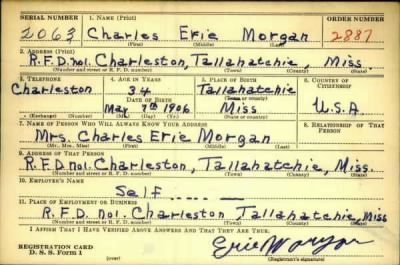 SERIAL NUMBER 1. NAME (Print) ORDER NUMBER
2063 Charles Eric Morgan 2887
(First) (Middle) (Last)
2. ADDRESS (Print)
R.F.D no1. Charleston, Tallahatchie, Miss.
(Number and street or R. F. D. number) (Town) (County) (State)
3. TELEPHONE 4. AGE IN YEARS 5. PLACE OF BIRTH 6. COUNTRY OF CITIZENSHIP
Charleston 34 Tallahatchie
DATE OF BIRTH (Town or county)
May 9th 1906 Miss U.S.A
(Exchange) (Number) (Mo.) (Day) (Yr.) (State or country)
7. NAME OF PERSON WHO WILL ALWAYS KNOW YOUR ADDRESS 8. RELATIONSHIP OF THAT PERSON
Mrs. Charles Eric Morgan
(Mr., Mrs., Miss) (First) (Middle) (Last)
9. ADDRESS OF THAT PERSON
R.F.D no1. Charleston, Tallahatchie, Miss.
(Number and street or R. F. D. number) (Town) (County) (State)
10. EMPLOYER'S NAME
Self
11. PLACE OF EMPLOYMENT OR BUSINESS
R.F.D. no1. Charleston Tallahatchie, Miss
(Number and street or R. F. D. number) (Town) (County) (State)
I AFFIRM THAT I HAVE VERIFIED ABOVE ANSWERS AND THAT THEY ARE TRUE.
REGISTRATION CARD Eric Morgan
D. S. S. Form 1 (over) (Registrant's signature)